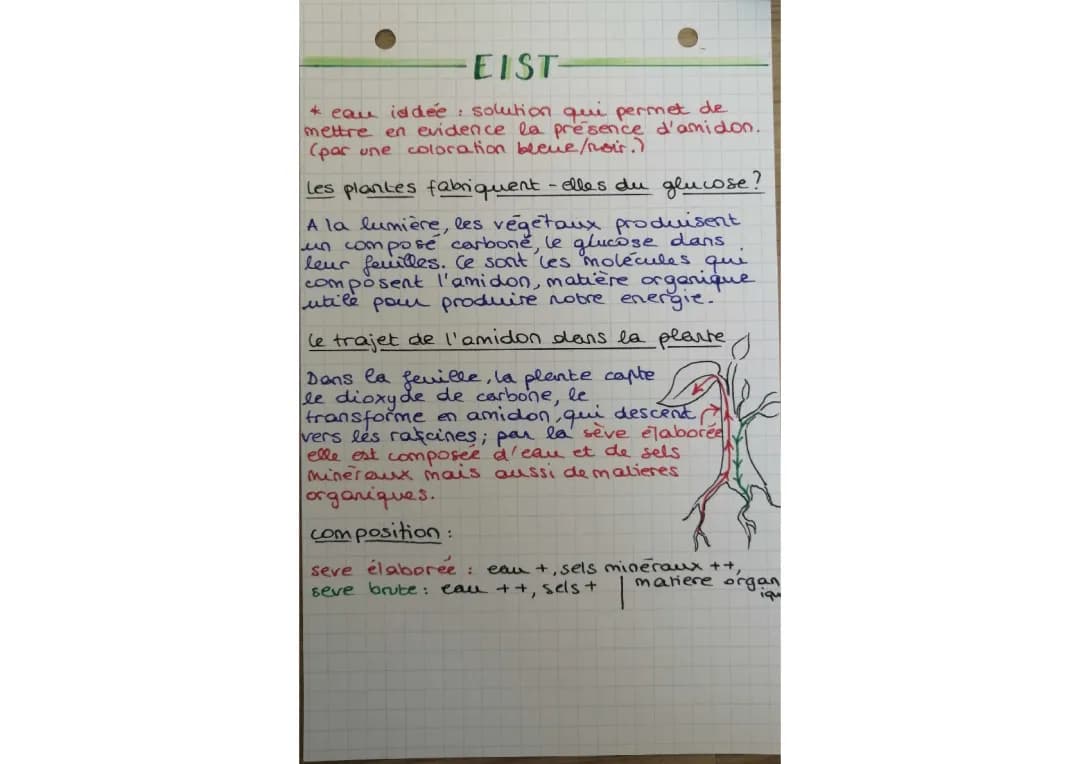 EIST
* eau iodée : solution qui permet de
mettre en evidence la présence d'amidon.
(par une coloration bleue/noir.)
Les plantes fabriquent-elles du glucose?
A la lumière, les végétaux produisent
un composé carboné, le glucose dans
leur feuilles. Ce sont les molécules qui
composent l'amidon, matière organique
utile pour produire notre energie.
Le trajet de l'amidon dans la plante
Dans la feuille, la plante capte
le dioxyde de carbone, le
transforme en amidon, qui descent
vers les racines; par la sève élaborée
elle est composée d'eau et de sels
minéraux mais aussi de matieres
organiques.
composition :
seve élaborée : eau +, sels minéraux ++,
matiere organ
ique
seve brute : eau ++, sels +